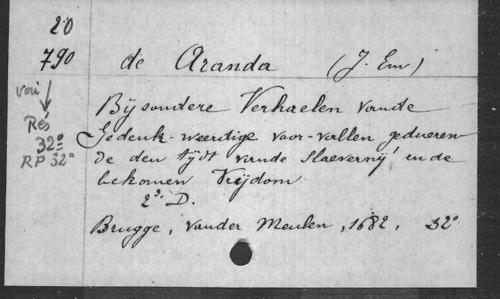 20
790 de Aranda (J. Em)
voir
Rés
32º
RP 32º
Bijsondere Verhaelen vande
Gedenk-weerdige voor-vallen gedueren
de den tijdt vande Slaevernij en de
bekomen Vrijdom
2º. D.
Brugge, vander Meulen, 1682, 32º